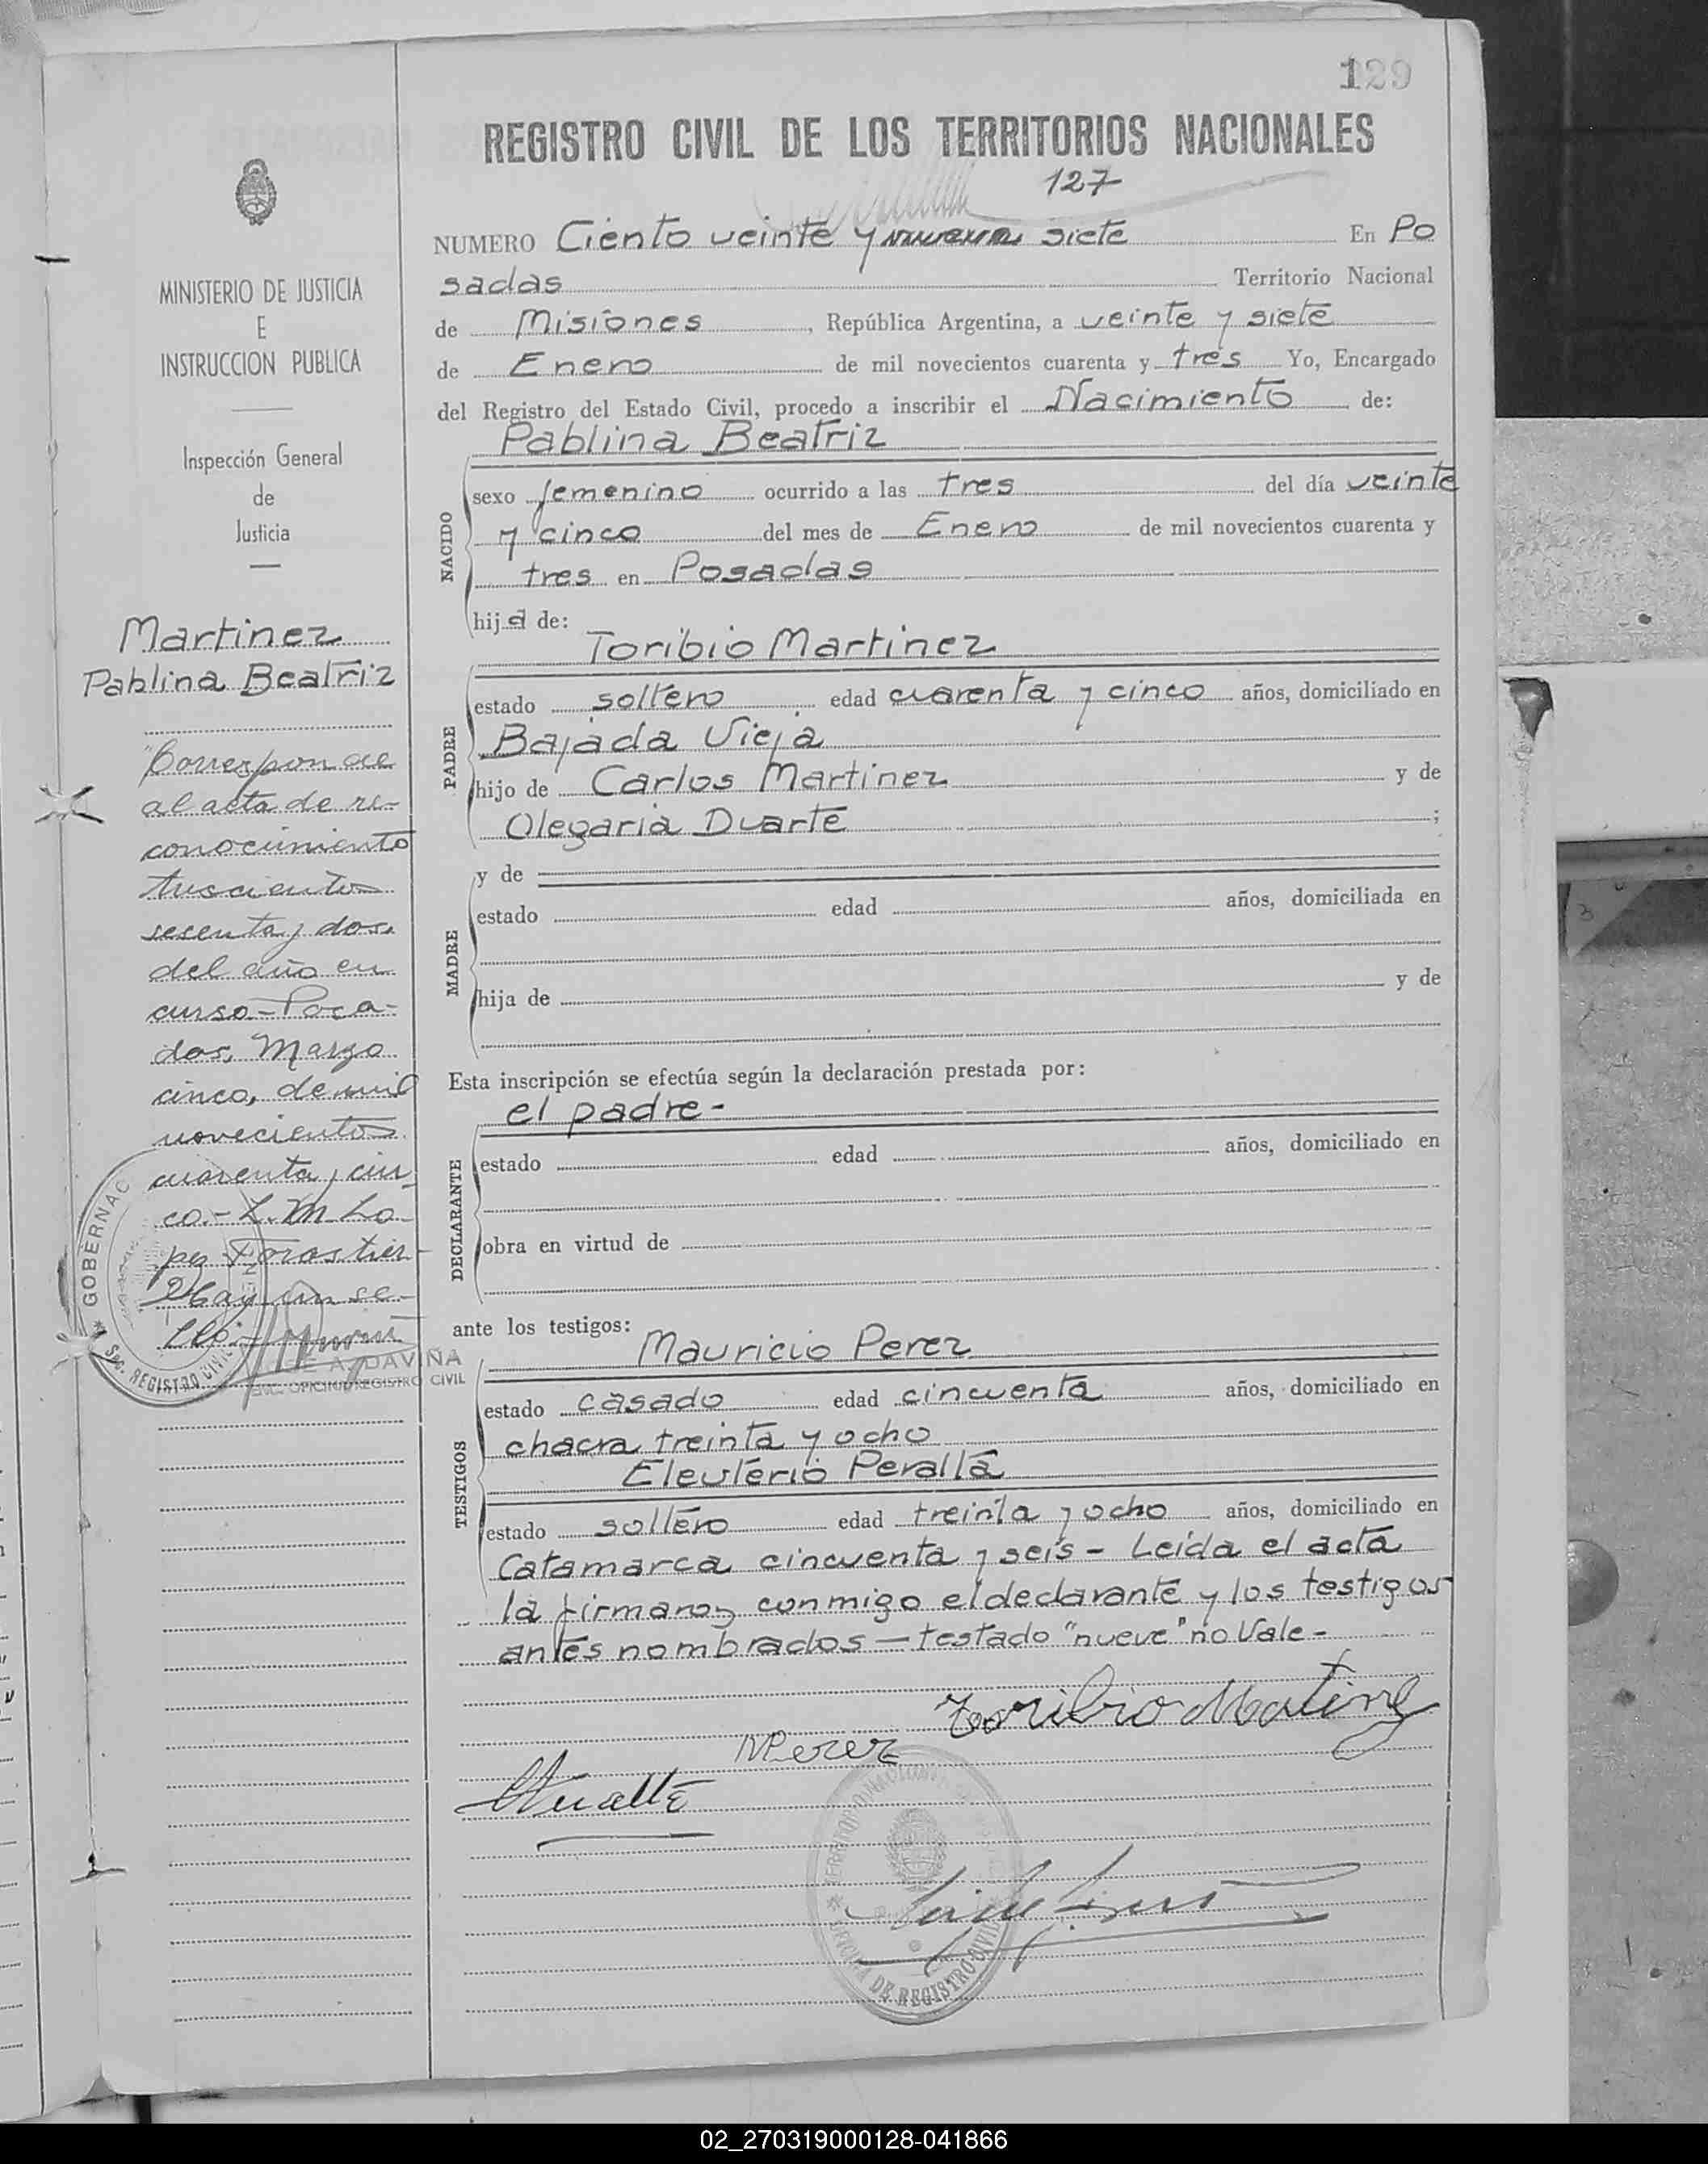 129
REGISTRO CIVIL DE LOS TERRITORIOS NACIONALES
127
NUMERO Ciento veinte y nueve siete En Po
sadas Territorio Nacional
de Misiones, República Argentina, a veinte y siete
de Enero de mil novecientos cuarenta y tres Yo, Encargado
del Registro del Estado Civil, procedo a inscribir el Nacimiento de:
Pablina Beatriz
NACIDO
sexo femenino ocurrido a las tres del día veinte
y cinco del mes de Enero de mil novecientos cuarenta y
tres en Posadas
hija de:
Toribio Martinez
PADRE
estado soltero edad cuarenta y cinco años, domiciliado en
Bajada Vieja
hijo de Carlos Martinez y de
Olegaria Duarte ;
MADRE
y de
estado edad años, domiciliada en
hija de y de
Esta inscripción se efectúa según la declaración prestada por:
el padre-
DECLARANTE
estado edad años, domiciliado en
obra en virtud de
ante los testigos:
TESTIGOS
Mauricio Perez
estado casado edad cincuenta años, domiciliado en
chacra treinta y ocho
Eleuterio Peralta
estado soltero edad treinta y ocho años, domiciliado en
Catamarca cincuenta y seis - Leida el acta
la firmaron conmigo el declarante y los testigos
antes nombrados — testado "nueve" no Vale -
Toribio Martinez
MPerez
MINISTERIO DE JUSTICIA
E
INSTRUCCION PUBLICA
Inspección General
de
Justicia
Martinez
Pablina Beatriz
"Corresponde
al acta de re-
conocimiento
trescientos
sesenta y dos.
del año en
curso-Posa-
das, Marzo
cinco, de mil
novecientos
cuarenta y cin
co.- L. M. Lo-
pez Forastier-
Hay un se-
llo.-
GOBERNAC
SEC. REGISTRO CIVIL
A. DAVIÑA
ENC. OFICINA REGISTRO CIVIL
OFICINA DE REGISTRO CIVIL
02_270319000128-041866